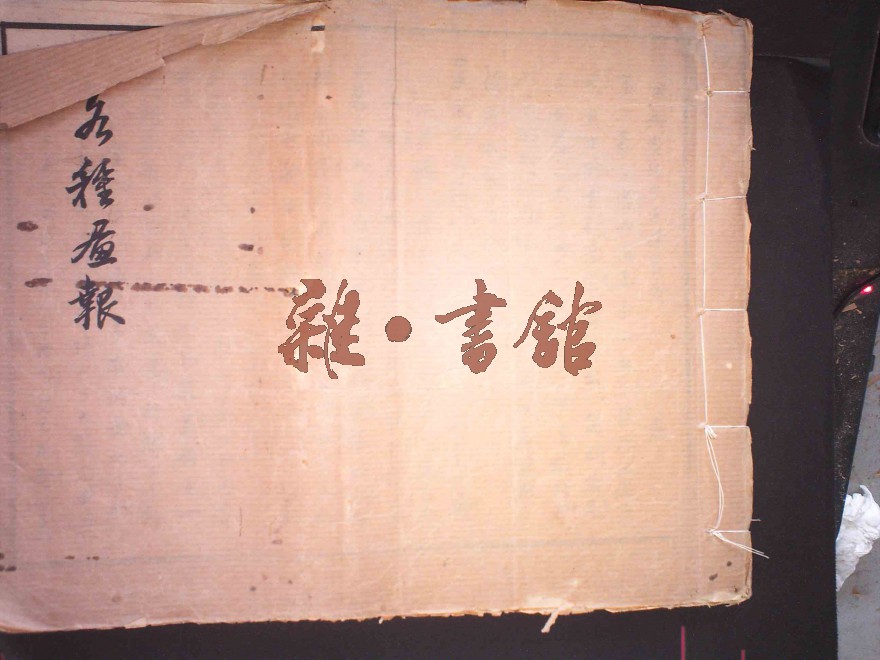 各種畫報
雜・書館